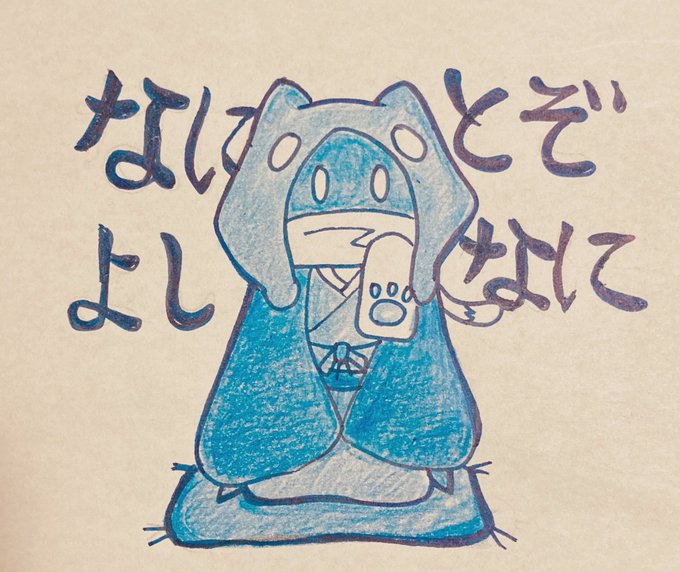 なにとぞ
よしなに